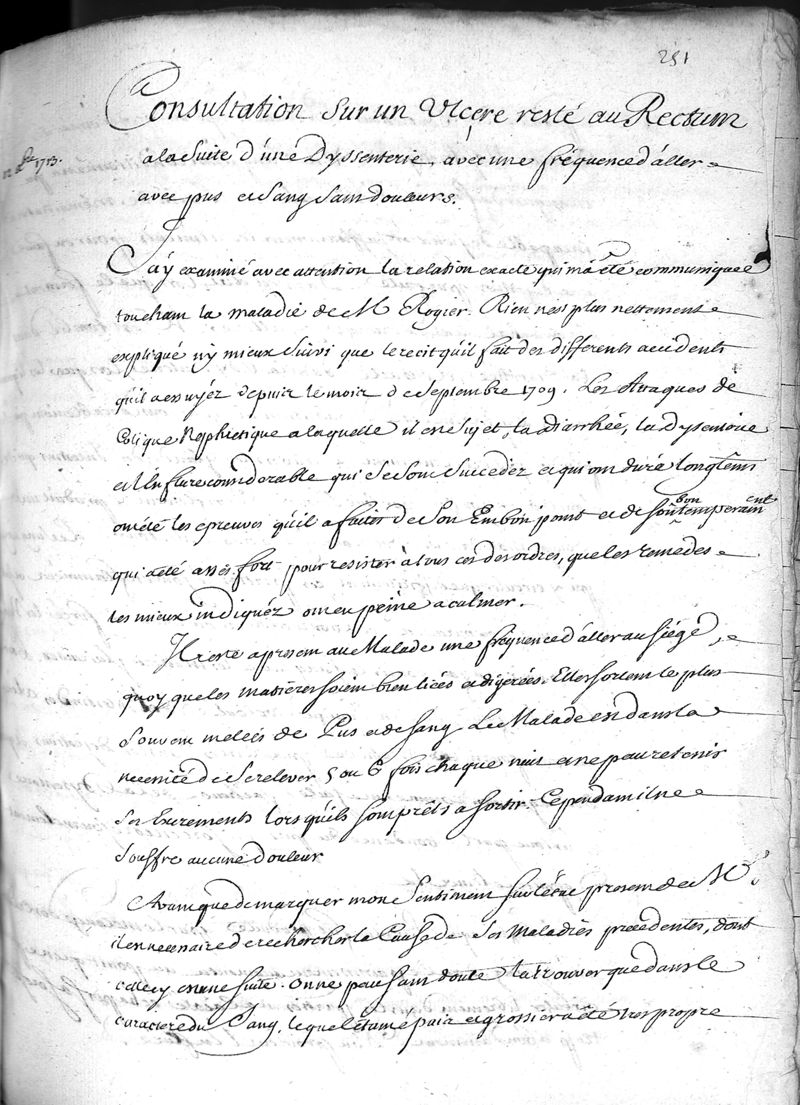 251
Consultation sur un Ulcere resté au Rectum
1713.
a la suite d'une Dyssenterie, avec une fréquence d'aller
avec pus et sang sans douleurs.
J'ay examiné avec attention la relation exacte qui m'a été communiquée
touchant la maladie de M Rogier. Rien n'est plus nettement
expliqué n'y mieux suivi que le recit qu'il fait des differents accidents
qu'il a essuyéz depuis le mois de Septembre 1709. Les Attaques de
Colique Nephretique a laquelle il est sujet, la diarrhée, la dysenterie
et l'Enflure considerable qui se sont succedéz et qui ont duré longtems
ont été les epreuves qu'il a faites de son Embonpoint et de son bon temperament
qui a été assés fort pour resister à tous ces desordres, que les remedes
les mieux indiquéz ont eu peine a calmer.
Il reste a present au Malade une fréquence d'aller au siége,
quoy que les matieres soient bien liées et digerées. Elles sortent le plus
souvent melées de Pus et de sang. Le Malade est dans la
necessité de se relever 5 ou 6 fois chaque nuit et ne peut retenir
ses Excrements lors qu'ils sont prêts a sortir. Cependant il ne
souffre aucune douleur
Avant que de marquer mon Sentiment sur l'état present de M
il est necessaire de rechercher la Cause de ses Maladies precedentes, dont
celle cy est une suite. On ne peut sans doute la trouver que dans le
caractere du Sang, lequel étant épais et grossier a été tres propre